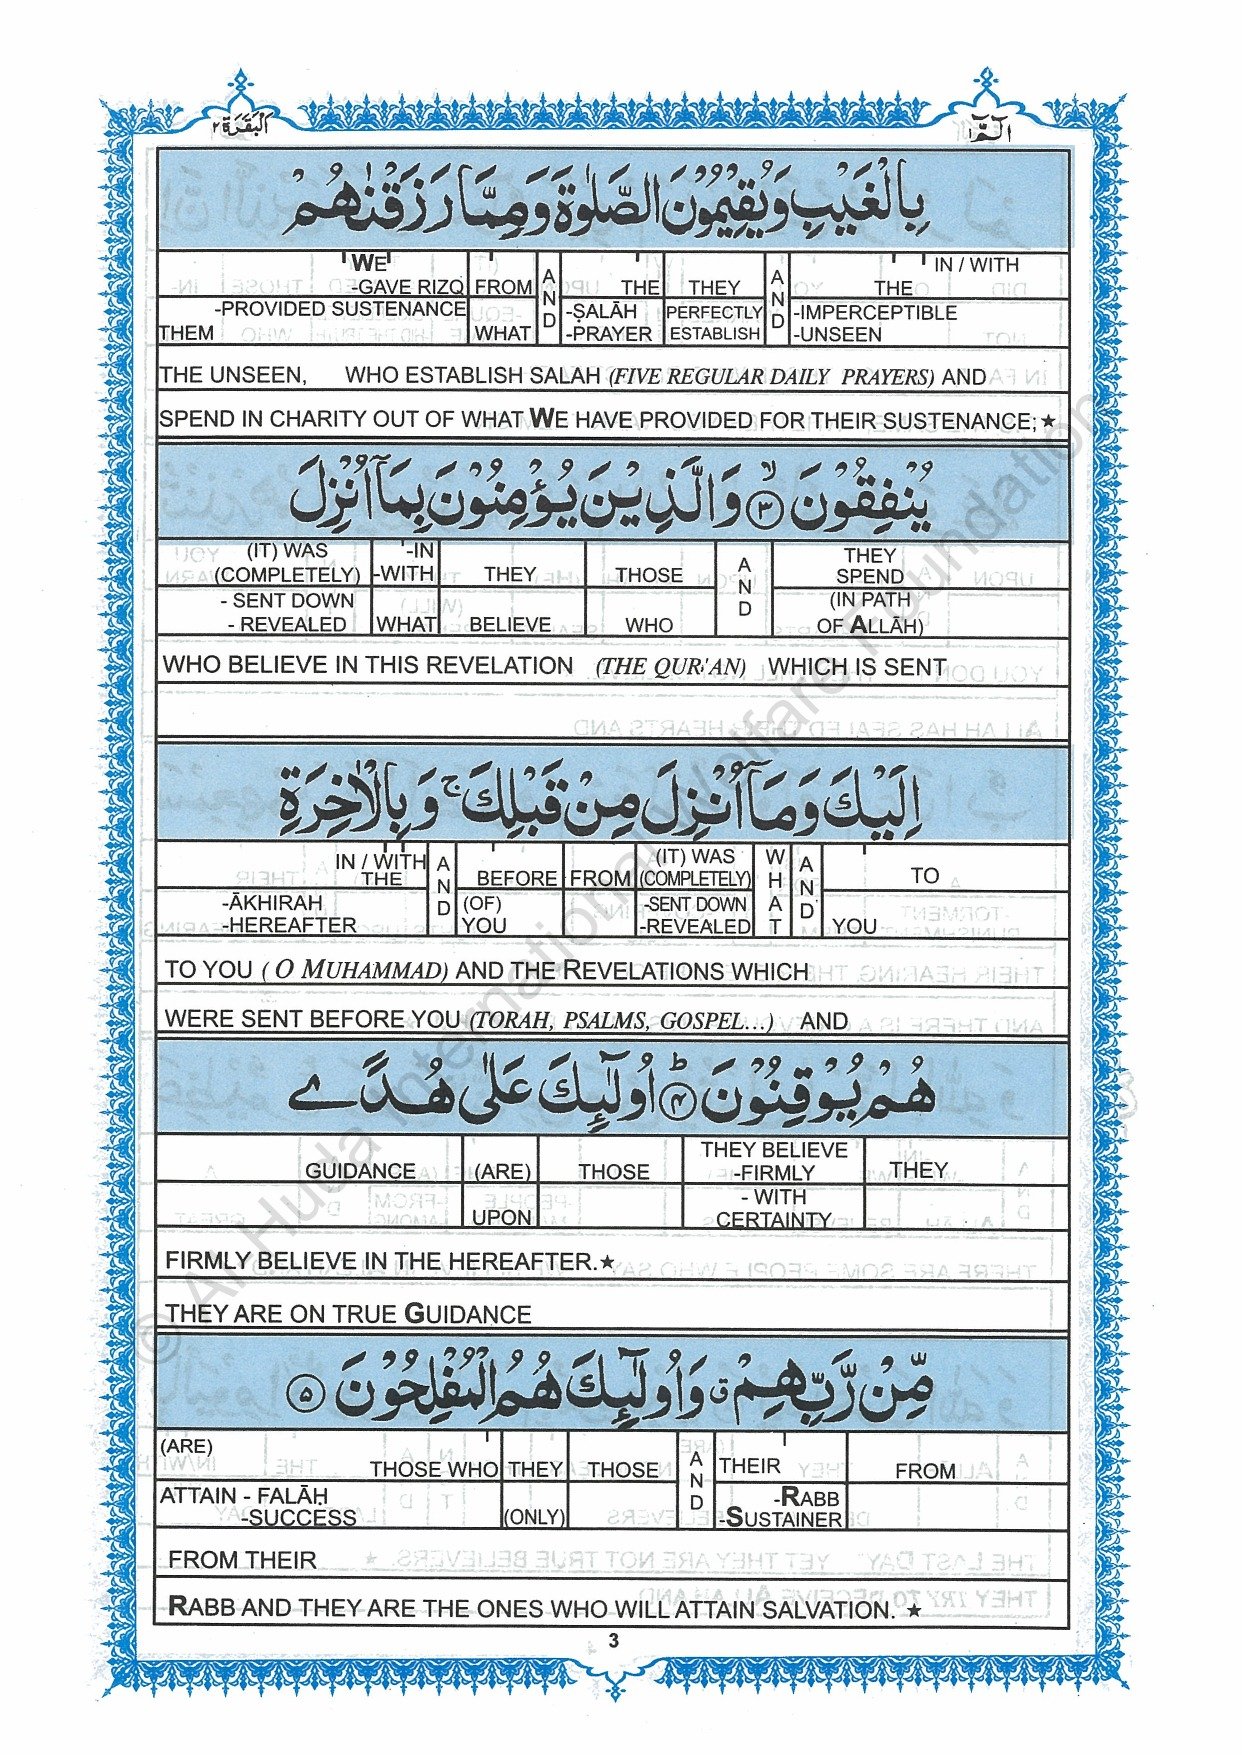 البقرة ٢
الٓمّٓ ١
بِالْغَيْبِ وَيُقِيمُونَ الصَّلٰوةَ وَمِمَّا رَزَقْنٰهُمْ
WE -GAVE RIZQ | FROM | AND | THE | THEY | AND | IN / WITH THE
THEM -PROVIDED SUSTENANCE | WHAT | -ṢALĀH -PRAYER | PERFECTLY ESTABLISH | -IMPERCEPTIBLE -UNSEEN
THE UNSEEN, WHO ESTABLISH SALAH (FIVE REGULAR DAILY PRAYERS) AND
SPEND IN CHARITY OUT OF WHAT WE HAVE PROVIDED FOR THEIR SUSTENANCE;★
يُنْفِقُونَ ۙ﴿٣﴾ وَالَّذِيْنَ يُؤْمِنُوْنَ بِمَآ اُنْزِلَ
(IT) WAS (COMPLETELY) | -IN -WITH | THEY | THOSE | AND | THEY SPEND
- SENT DOWN - REVEALED | WHAT | BELIEVE | WHO | (IN PATH OF ALLĀH)
WHO BELIEVE IN THIS REVELATION (THE QUR'AN) WHICH IS SENT
اِلَيْكَ وَمَآ اُنْزِلَ مِنْ قَبْلِكَ ۚ وَبِالْاٰخِرَةِ
IN / WITH THE | AND | BEFORE | FROM | (IT) WAS (COMPLETELY) | WHAT | AND | TO
-ĀKHIRAH -HEREAFTER | (OF) YOU | -SENT DOWN -REVEALED | YOU
TO YOU ( O MUHAMMAD) AND THE REVELATIONS WHICH
WERE SENT BEFORE YOU (TORAH, PSALMS, GOSPEL...) AND
هُمْ يُوْقِنُوْنَ ؕ﴿٤﴾ اُولٰٓئِكَ عَلٰى هُدًى
GUIDANCE | (ARE) | THOSE | THEY BELIEVE -FIRMLY | THEY
UPON | - WITH CERTAINTY
FIRMLY BELIEVE IN THE HEREAFTER.★
THEY ARE ON TRUE GUIDANCE
مِّنْ رَّبِّهِمْ ۗ وَاُولٰٓئِكَ هُمُ الْمُفْلِحُوْنَ ﴿٥﴾
(ARE) THOSE WHO | THEY | THOSE | AND | THEIR | FROM
ATTAIN - FALĀḤ -SUCCESS | (ONLY) | -RABB -SUSTAINER
FROM THEIR
RABB AND THEY ARE THE ONES WHO WILL ATTAIN SALVATION. ★
3